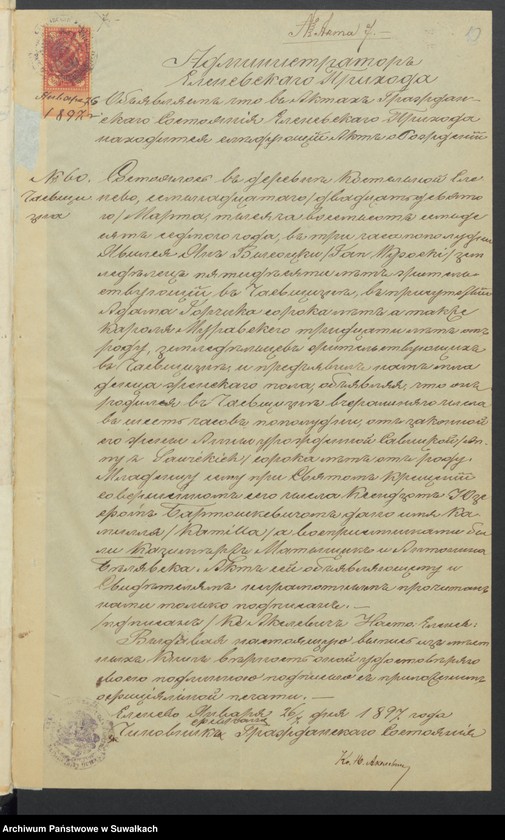 № Акта 7.—
Администраторъ
Еленевскаго Прихода
Января 26
1897 г
Объявляетъ что въ Актахъ Граждан-
скаго Состоянія Еленевскаго Прихода
находится слѣдующій Актъ о Рожденіи
№ 60.
Состоялось въ деревнѣ Костельной Еле
нево, семнадцатаго/двадцать девята
го/Марта, тысяча восемьсотъ семьде
сятъ седмого года, въ три часа пополудни
Явился Янъ Высоцки/Jan Wysocki/ зем
ледѣлецъ пятидесяти лѣтъ житель-
ствующій въ въ присутствіи
Адама сорока лѣтъ а также
Кароля Муравскаго тридцати лѣтъ отъ
роду, земледѣльцевъ жительствующихъ
въ и предъявилъ намъ мла
денца женскаго пола, объявляя, что онъ
родился въ вчерашняго числа
въ шесть часовъ пополудни, отъ законной
его жены Анны урожденной Савицкой/An-
ny z Sawickich/ сорока лѣтъ отъ роду.
Младенцу сему при Святомъ Крещеніи
совершенномъ сего числа Ксендзомъ Юзе
фомъ Бартошкевичемъ дано имя Ка
милля/Kamilla/ а воспріемниками бы
ли Казимѣръ и Антонина
Бѣлявска. Актъ сей объявляющему и
Свидѣтелямъ неграмотнымъ прочитанъ
нами только подписанъ.—
/подписанъ/ Кс. Акелевичъ Наст. Еленев:
Выдавая настоящую выпись изъ мѣст
ныхъ книгъ вѣрность оной удостовѣряю
своею подлинною подписью съ приложеніемъ
оффиціальной печати.—
Еленево Января 26/ дня 1897 года
Чиновникъ Гражданскаго Состоянія
Archiwum Państwowe w Suwałkach